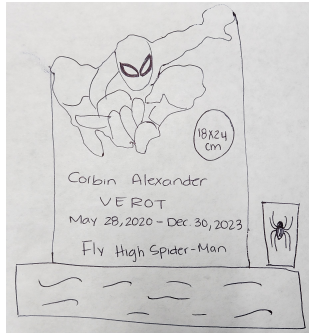 18x24
cm
Corbin Alexander
VEROT
May 28, 2020 - Dec. 30, 2023
Fly High Spider-Man